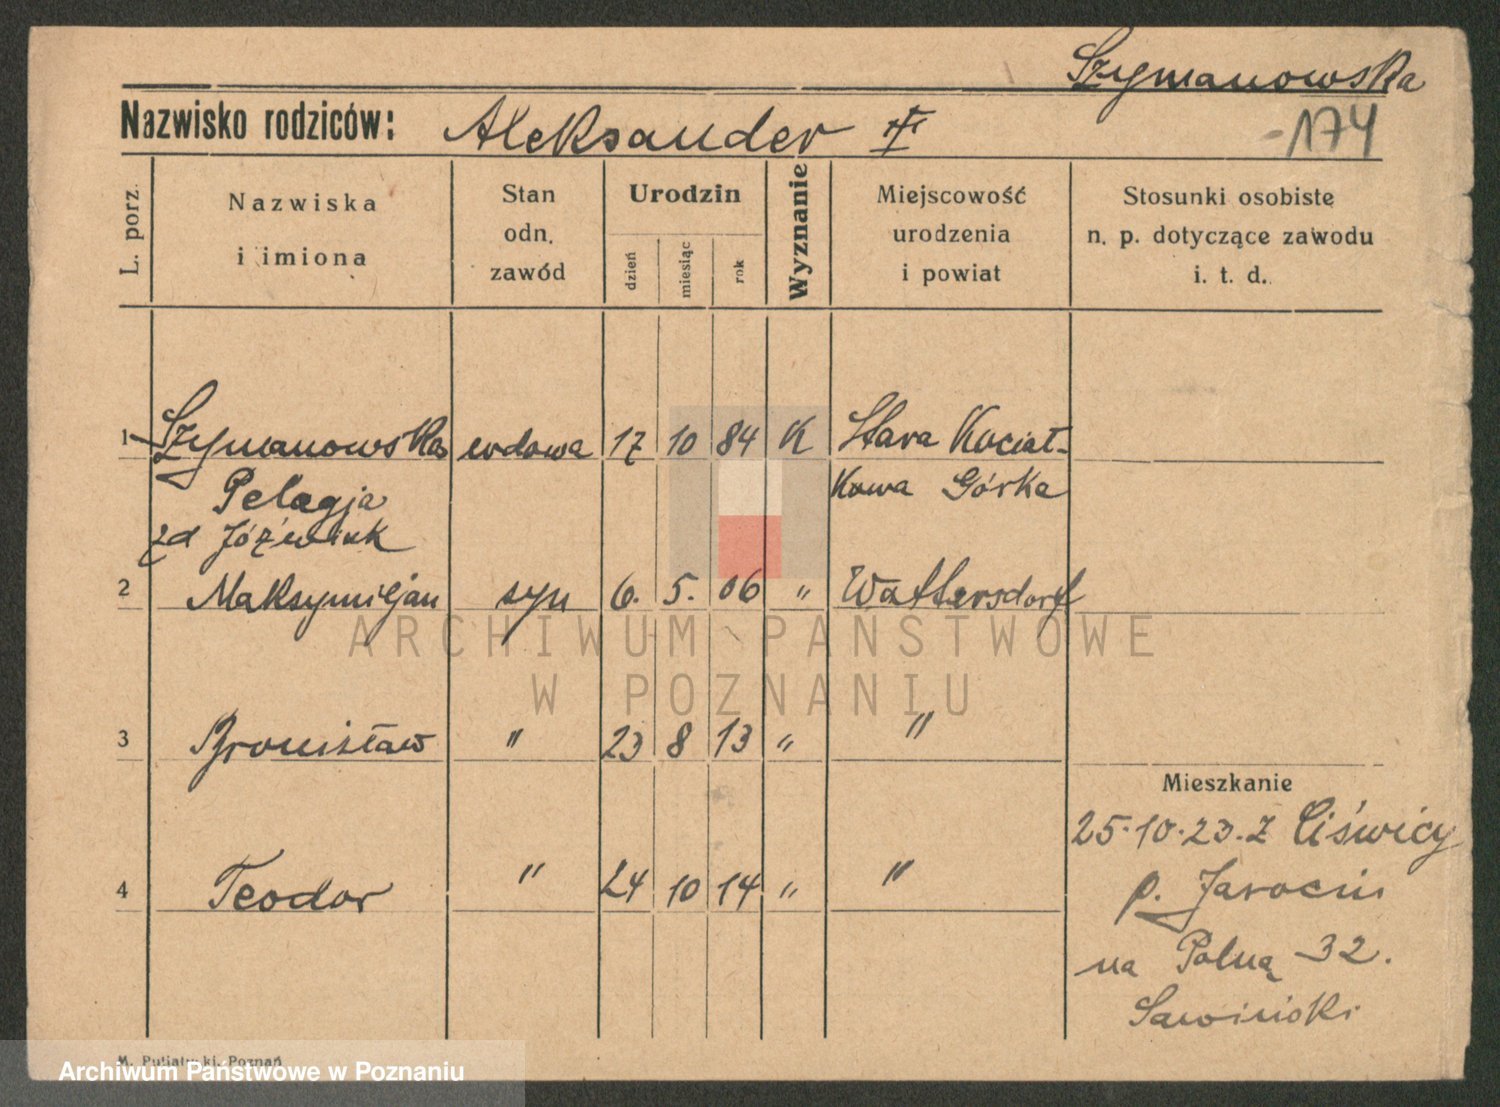 Szymanowska
Nazwisko rodziców: Aleksander
-174
L. porz.
Nazwiska
i imiona
Stan
odn.
zawód
Urodzin
dzień
miesiąc
rok
Wyznanie
Miejscowość
urodzenia
i powiat
Stosunki osobiste
n. p. dotyczące zawodu
i. t. d.
1 Szymanowska wdowa 17 10 84 K Stara Kociał-
Pelagja kowa Górka
zd Jóźwiak
2 Maksymiljan syn 6. 5. 06 " Wattersdorf
ARCHIWUM PAŃSTWOWE
W POZNANIU
3 Bronisław " 23 8 13 " "
Mieszkanie
25.10.23. z Ciświcy
4 Teodor " 24 10 14 " "
p. Jarocin
na Polną 32.
Sawiński
M. Putiatycki, Poznań
Archiwum Państwowe w Poznaniu